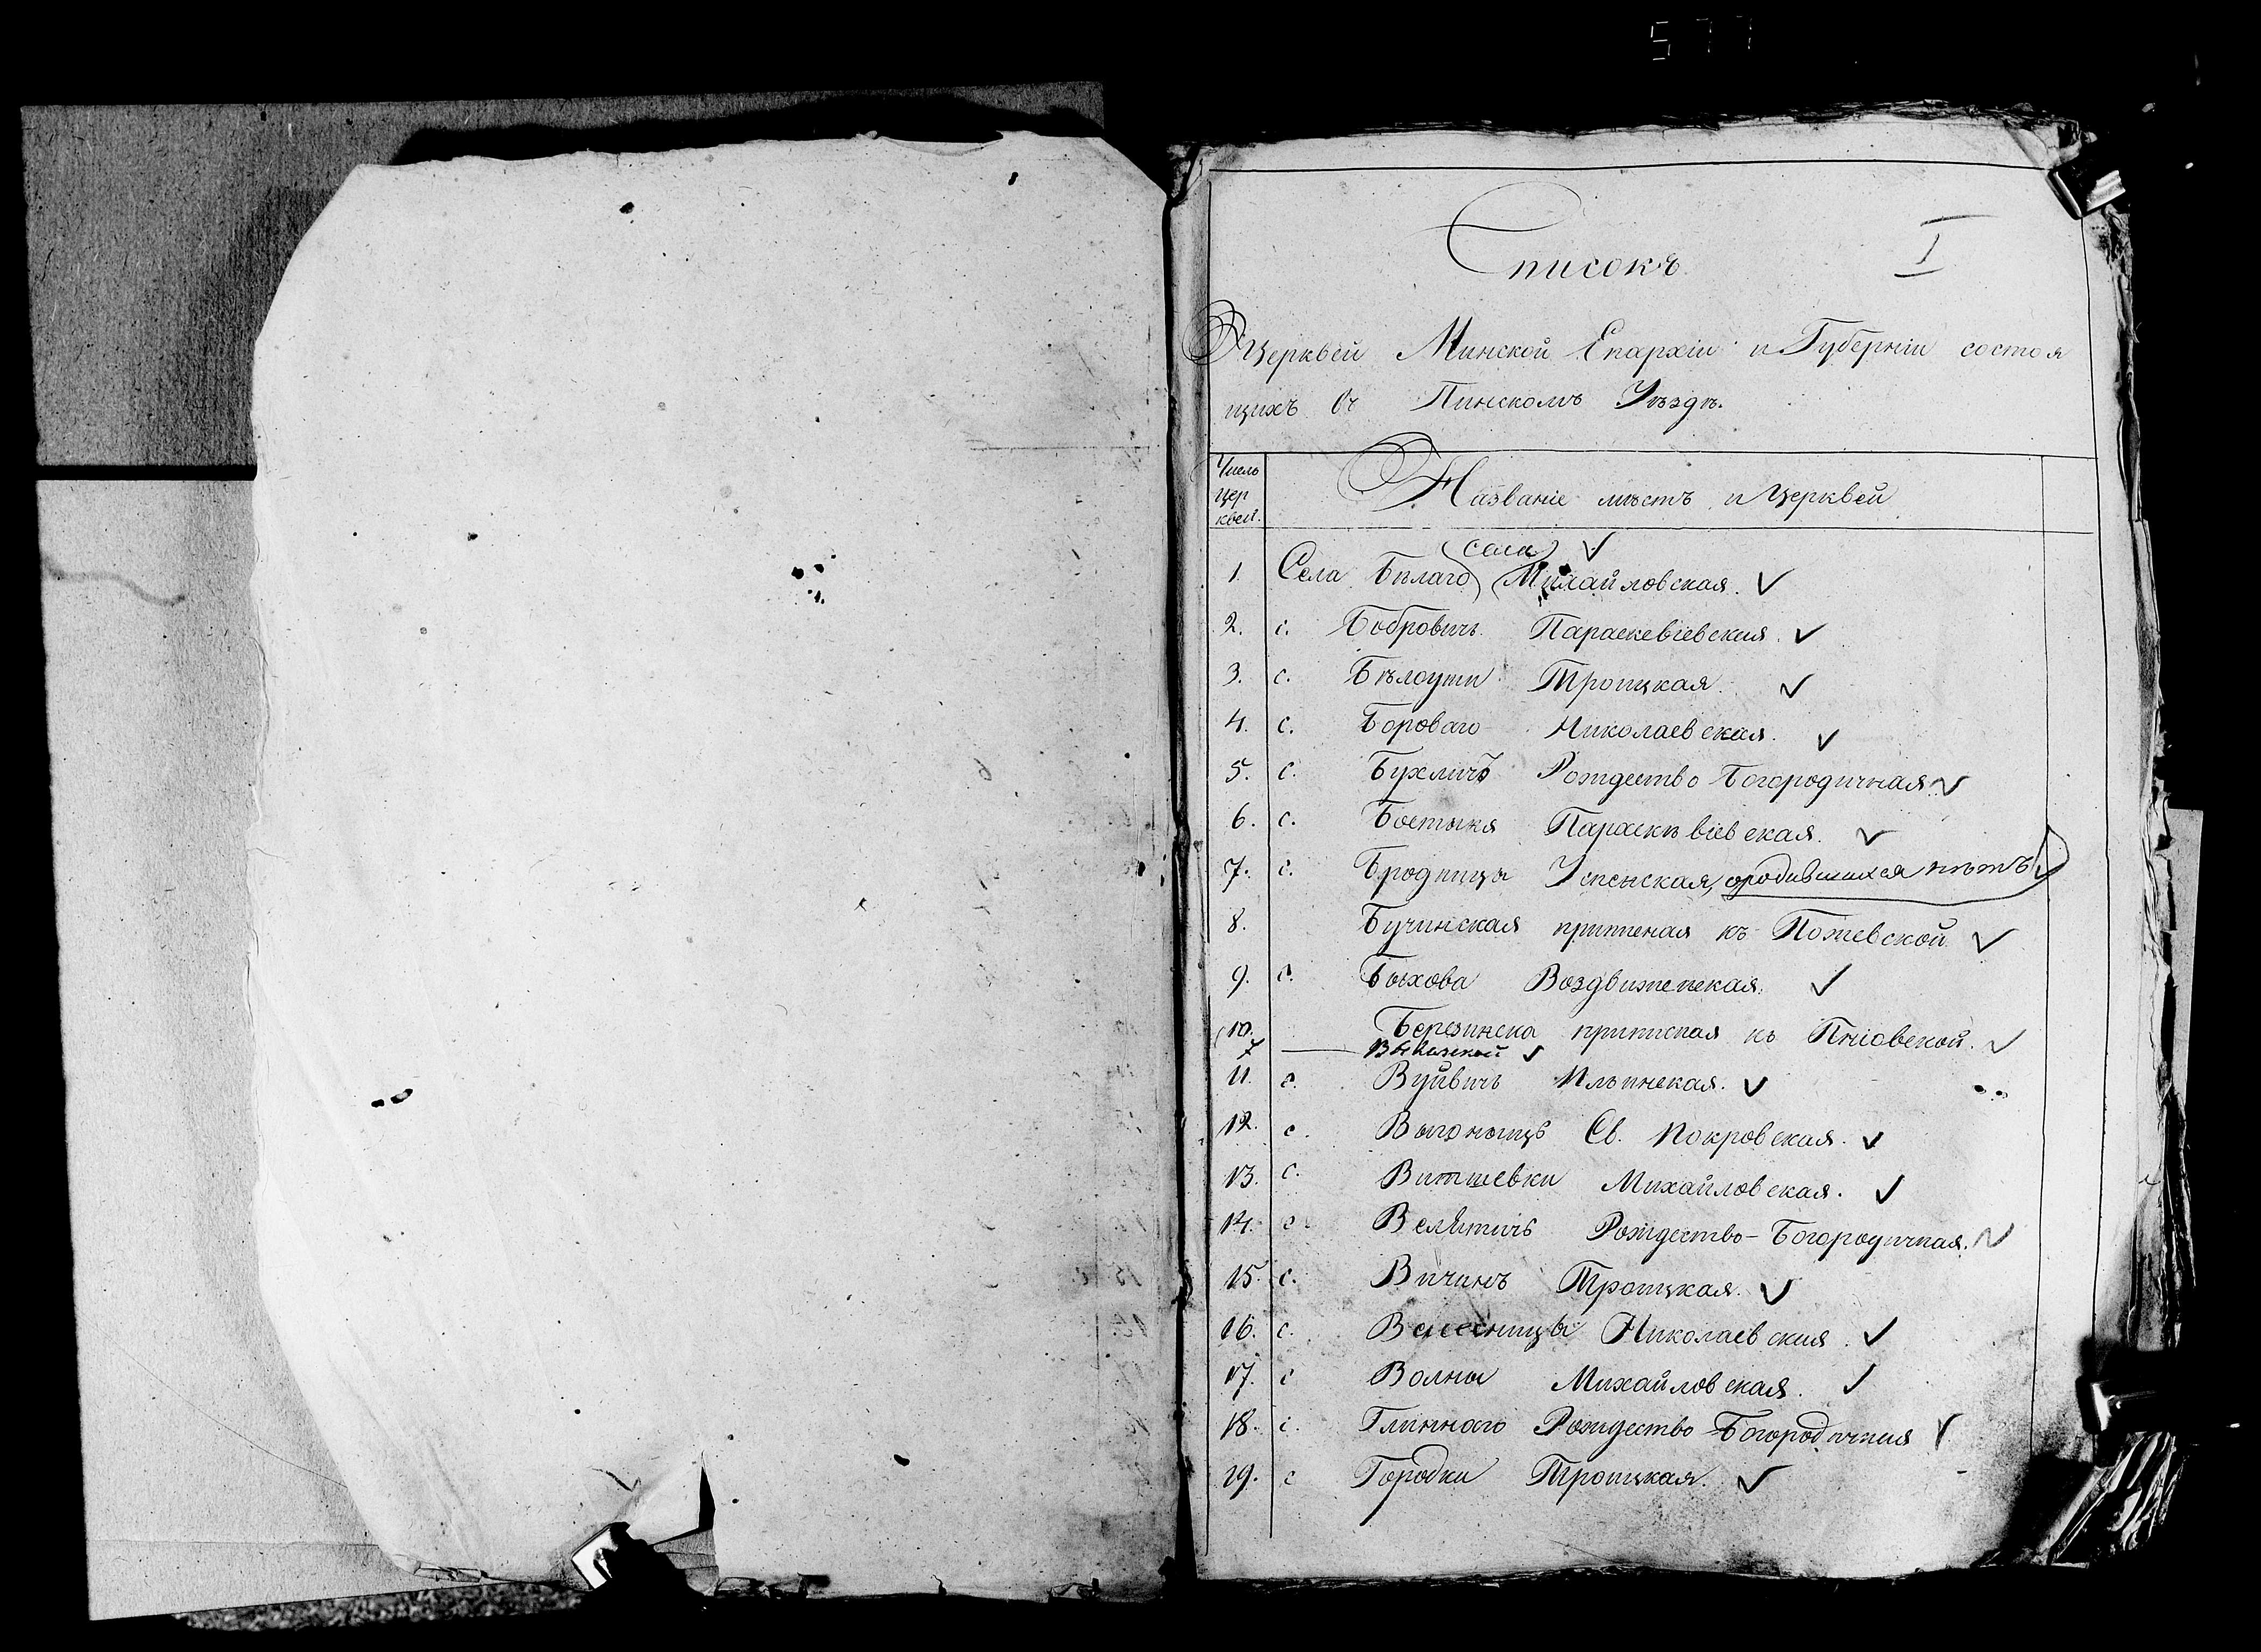 577
Списокъ
I
Церквей Минской Епархіи и Губерніи состоя
щихъ въ Пинскомъ Уѣздѣ.
Число
Цер
квей.
Названіе мѣстъ и Церквей
села
1. Села Бѣлаго Михайловская.
2. с. Бобровичъ Параскевіевская.
3. с. Бѣлоуши Троицкая.
4. с. Бороваго Николаевская.
5. с. Бухличъ Рождество Богородичная
6. с. Бостыня Параскѣвіевская.
7. с. Бродницы Успенская, о родившихся нѣтъ
8. Бучинская приписная къ Пожевской
9. с. Быхова Воздвиженская.
10. Березинска приписная къ Пніовской.
11. с. Вуйвичъ Ильинская.
12. с. Выгонощъ Св. Покровская.
13. с. Витчевки Михайловская.
14. с. Велятичъ Рождество-Богородичная.
15. с. Вичинъ Троицкая.
16. с. Велесницы Николаевская.
17. с Волны Михайловская.
18. с. Глиннаго Рождество Богородичная
19. с Городки Троицкая.